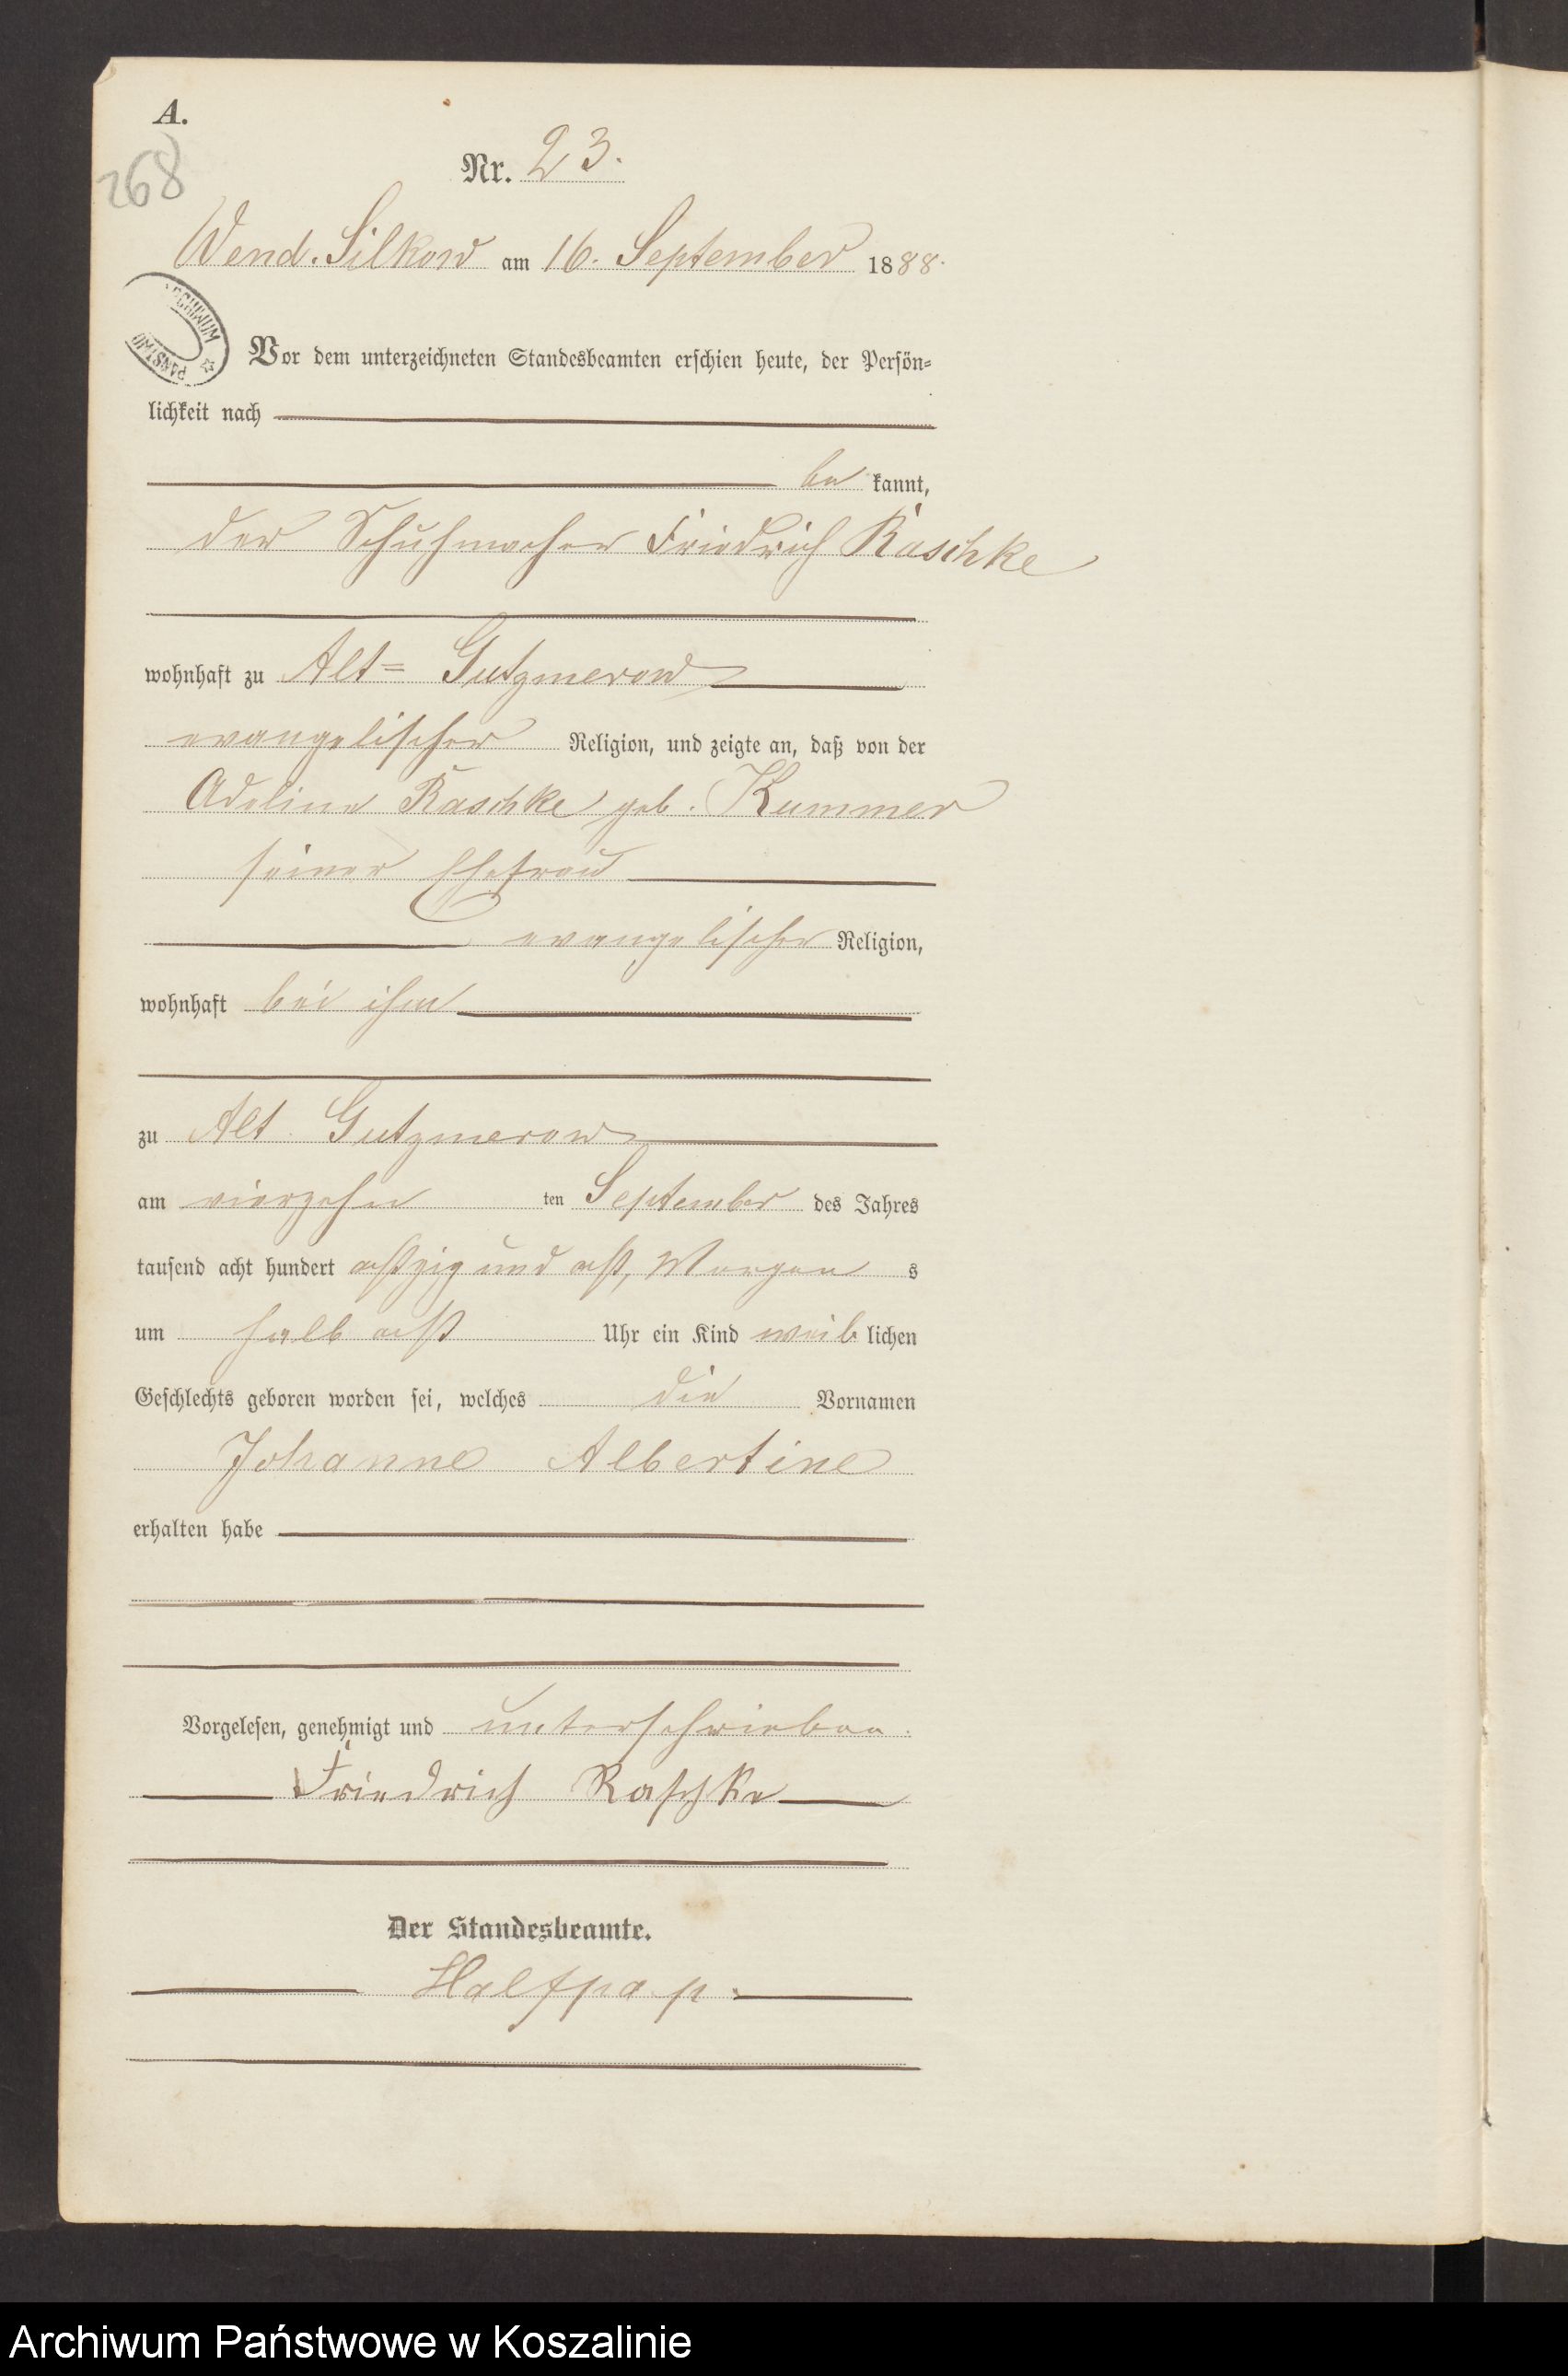 A.
268
Nr. 23.
Wend. Silkow am 16. September 1888.
ARCHIWUM PAŃSTWO
Vor dem unterzeichneten Standesbeamten erschien heute, der Persön=
lichkeit nach
be kannt,
der Schuhmacher Friedrich Raschke
wohnhaft zu Alt= Gutzmerow
evangelischer Religion, und zeigte an, daß von der
Adeline Raschke geb. Kummer
seiner Ehefrau
evangelischer Religion,
wohnhaft bei ihm
zu Alt Gutzmerow
am vierzehn ten September des Jahres
tausend acht hundert achtzig und acht, Morgen s
um halb acht Uhr ein Kind weib lichen
Geschlechts geboren worden sei, welches die Vornamen
Johanne Albertine
erhalten habe
Vorgelesen, genehmigt und unterschrieben.
Friedrich Raschke
Der Standesbeamte.
Halfpap.
Archiwum Państwowe w Koszalinie